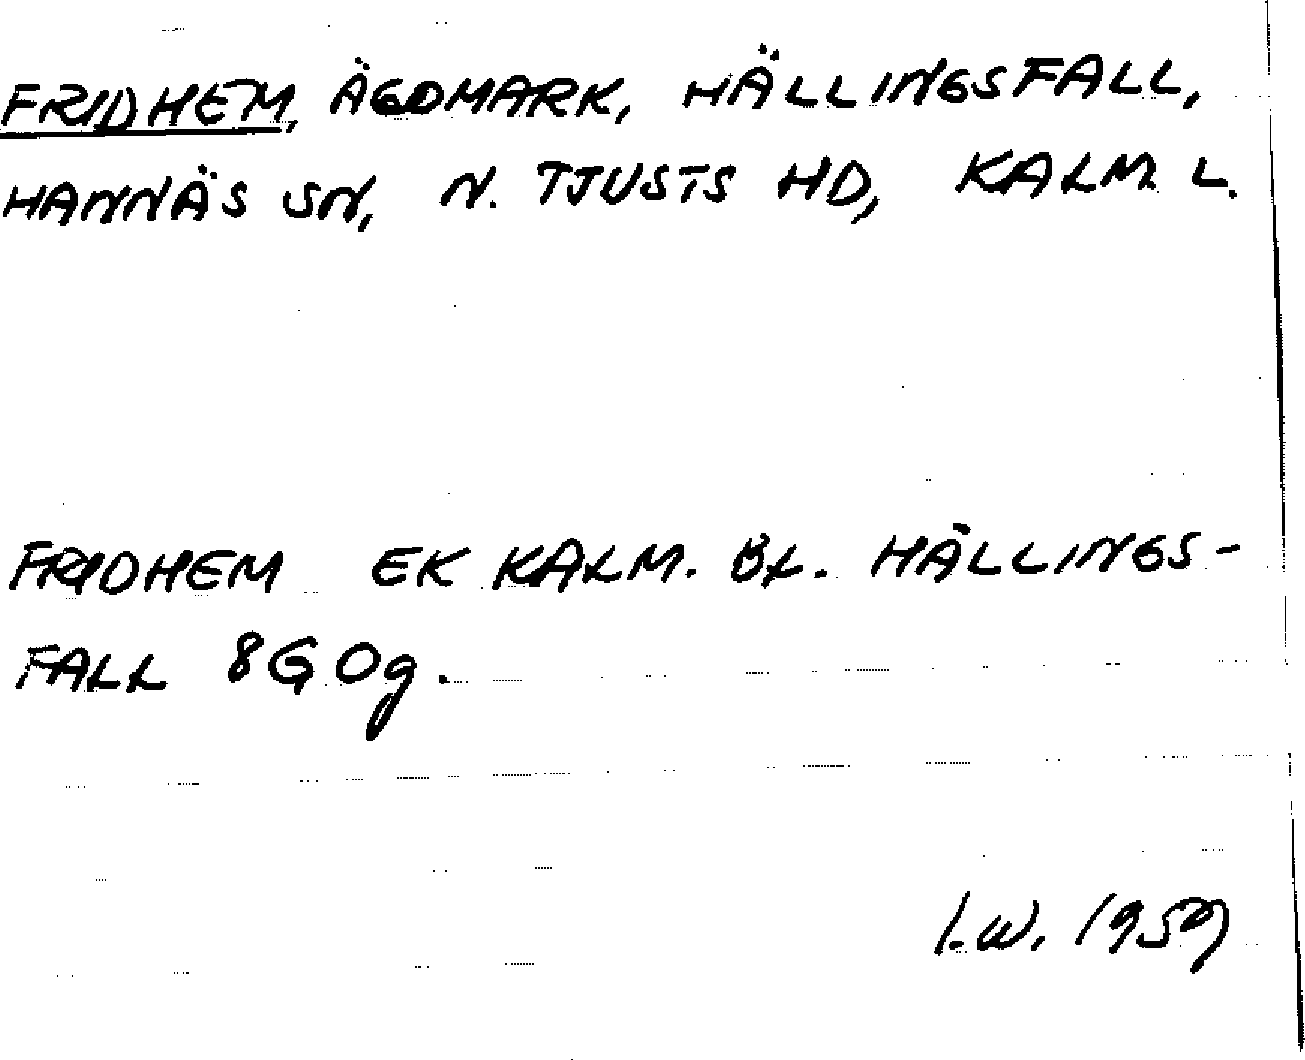 FRIDHEM, ÄGOMARK, HÄLLINGSFALL,
HANNÄS SN, N. TJUSTS HD, KALM. L.
FRIDHEM EK KALM. BL. HÄLLINGS-
FALL 8G 0g.
I.W. 1959